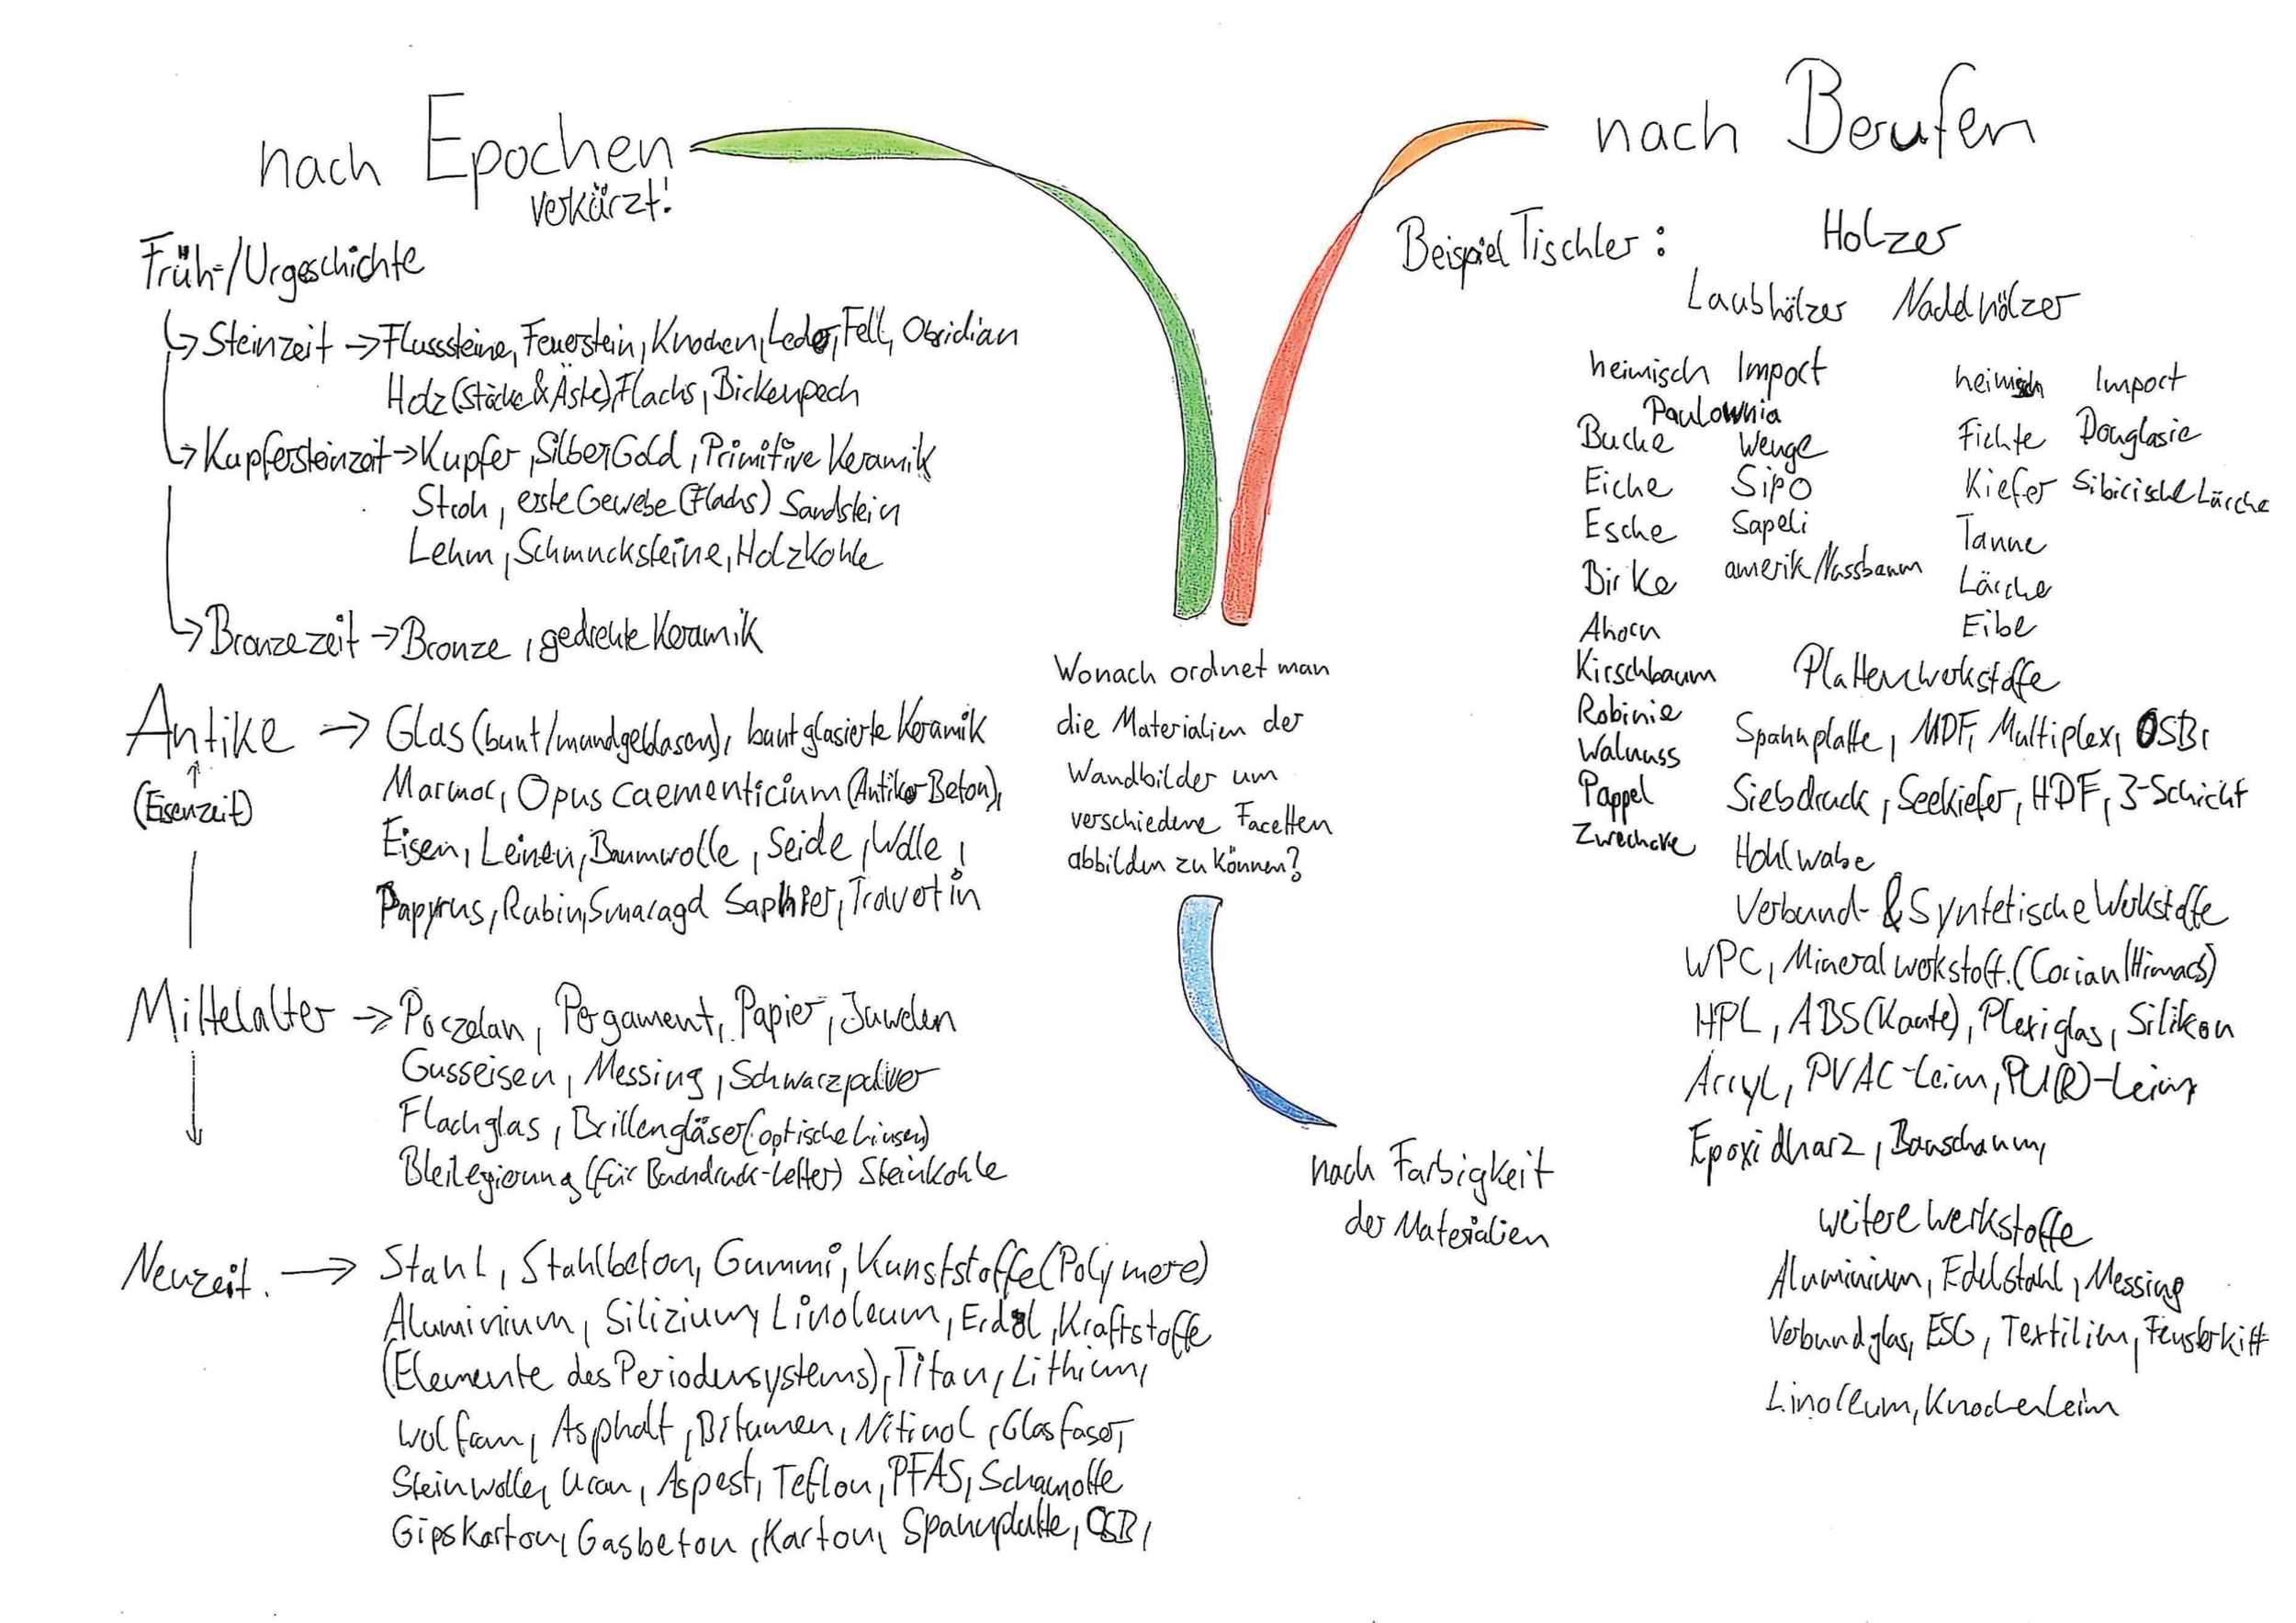 nach Epochen
verkürzt!
Früh-/Urgeschichte
↳ Steinzeit → Flusssteine, Feuerstein, Knochen, Leder, Fell, Obsidian
Holz (Stöcke & Äste), Flachs, Birkenpech
↳ Kupfersteinzeit → Kupfer, Silber, Gold, Primitive Keramik
Stroh, erste Gewebe (Flachs) Sandstein
Lehm, Schmucksteine, Holzkohle
↳ Bronzezeit → Bronze, gedrehte Keramik
Antike → Glas (bunt/mundgeblasen), bunt glasierte Keramik
(Eisenzeit)
Marmor, Opus caementicium (Antiker Beton),
Eisen, Leinen, Baumwolle, Seide, Wolle,
Papyrus, Rubin, Smaragd Saphier, Travertin
Mittelalter → Porzelan, Pergament, Papier, Juwelen
Gusseisen, Messing, Schwarzpulver
Flachglas, Brillengläser (optische Linsen)
Bleilegierung (für Buchdruck-Letter) Steinkohle
Neuzeit. → Stahl, Stahlbeton, Gummi, Kunststoffe (Polymere)
Aluminium, Silizium, Linoleum, Erdöl, Kraftstoffe
(Elemente des Periodensystems), Titan, Lithium,
Wolfram, Asphalt, Bitumen, Nitinol, Glasfaser,
Steinwolle, Uran, Aspest, Teflon, PFAS, Schamotte
Gipskarton, Gasbeton, Karton, Spannplatte, OSB,
Wonach ordnet man
die Materialien der
Wandbilder um
verschiedene Facetten
abbilden zu können?
nach Farbigkeit
der Materialien
nach Berufen
Beispiel Tischler: Holzer
Laubhölzer Nadelhölzer
heimisch Import heimisch Import
Paulownia
Buche Wenge Fichte Douglasie
Eiche Sipo Kiefer Sibirische Lärche
Esche Sapeli Tanne
Birke amerik. Nussbaum Lärche
Ahorn Eibe
Kirschbaum Plattenwerkstoffe
Robinie
Walnuss Spannplatte, MDF, Multiplex, OSB,
Pappel Siebdruck, Seekiefer, HDF, 3-Schicht
Zwetschke Hohlwabe
Verbund- & Syntetische Werkstoffe
WPC, Mineralwerkstoff. (Corian/Himacs)
HPL, ABS (Kante), Plexiglas, Silikon
Acryl, PVAC-Leim, PU(R)-Leim
Epoxidharz, Bauschaum,
weitere Werkstoffe
Aluminium, Edelstahl, Messing
Verbundglas, ESG, Textilien, Fensterkitt
Linoleum, Knochenleim